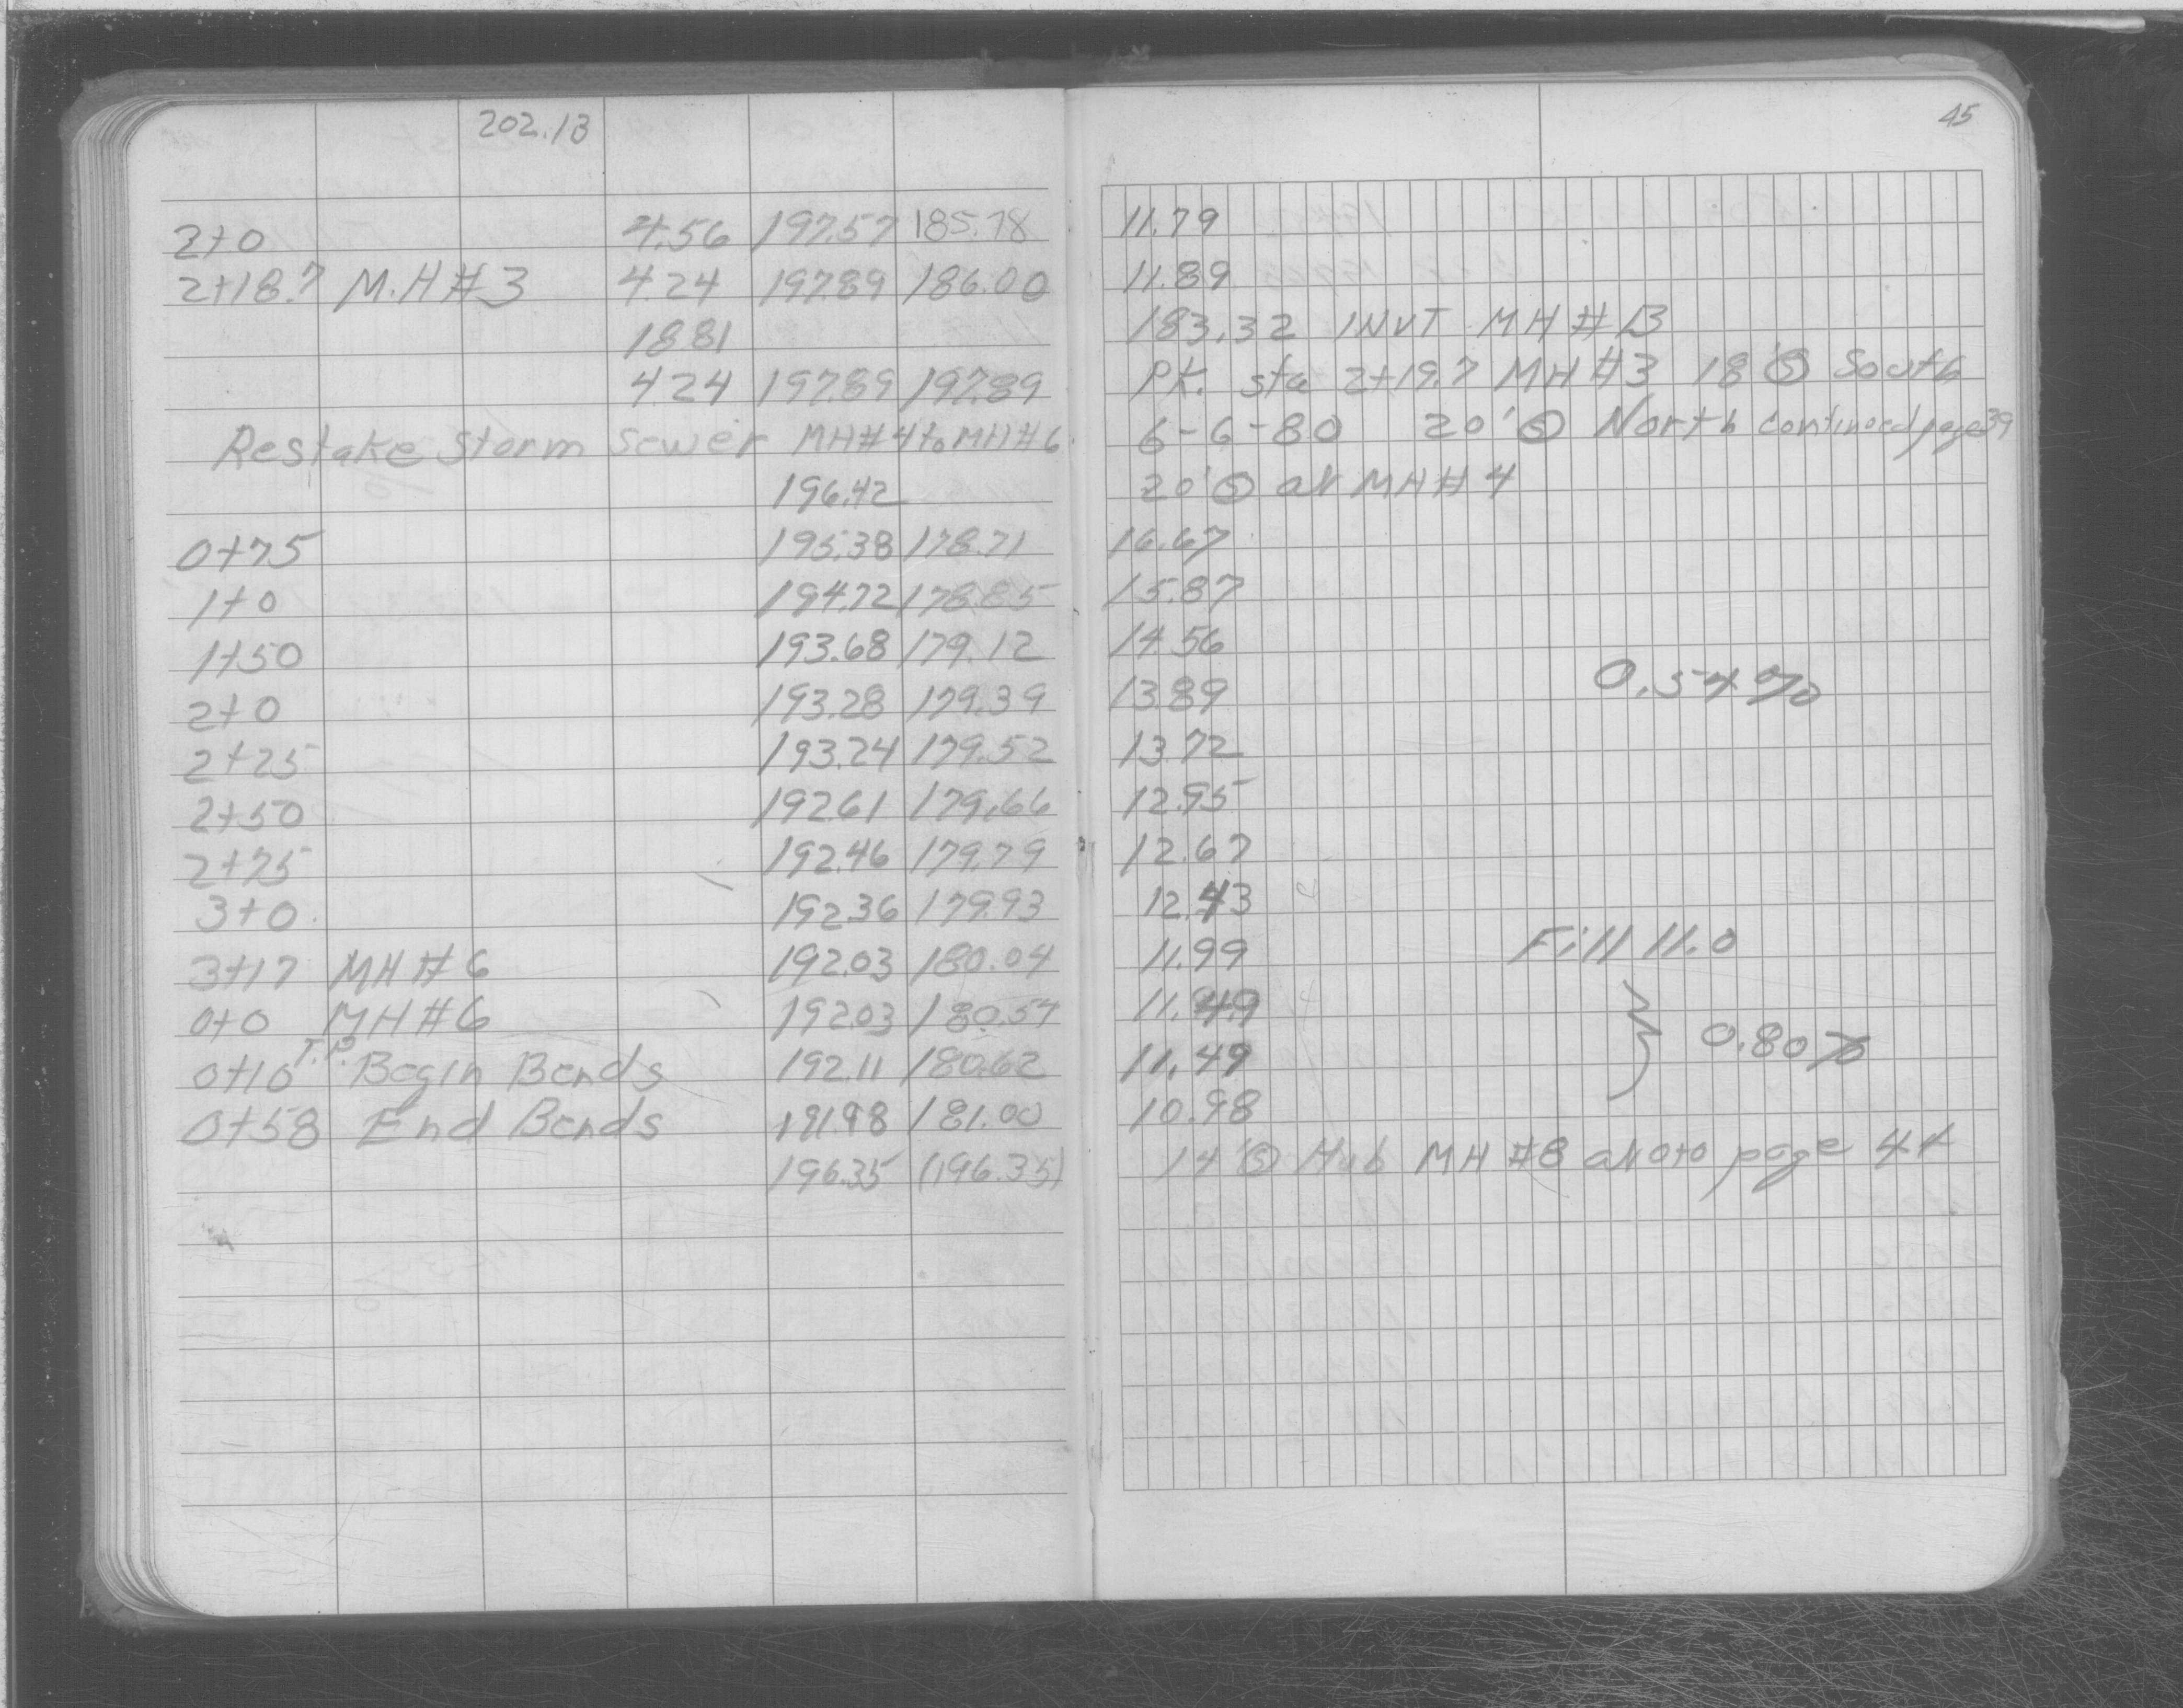 202.13
45
2+0 4.56 197.57 185.78 11.79
2+18.7 M.H#3 4.24 197.89 186.00 11.89
18.81 183.32 INVT MH#3
4.24 197.89 197.89 PK. sta 2+19.7 MH#3 18'Ⓢ South
Restake Storm Sewer MH#4 to MH#6 6-6-80 20'Ⓢ North continued page 39
196.42 20'Ⓢ at MH#4
0+75 195.38 178.71 16.67
1+0 194.72 178.85 15.87
1+50 193.68 179.12 14.56
0.54%
2+0 193.28 179.39 13.89
2+25 193.24 179.52 13.72
2+50 192.61 179.66 12.95
2+75 192.46 179.79 12.67
3+0 192.36 179.93 12.43
3+17 MH#6 192.03 180.04 11.99 Fill 11.0
0+0 MH#6 192.03 180.54 11.49
0+10 T.P. Begin Bends 192.11 180.62 11.49 0.80%
0+58 End Bends 191.98 181.00 10.98
196.35 (196.35) 14'Ⓢ Hub MH#8 at 0+0 page 44